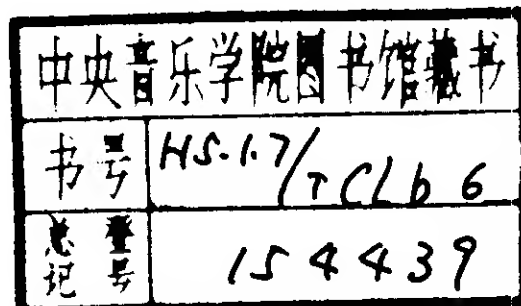 中央音乐学院图书馆藏书
书号 HS·1·7/TCLb6
总登记号 154439